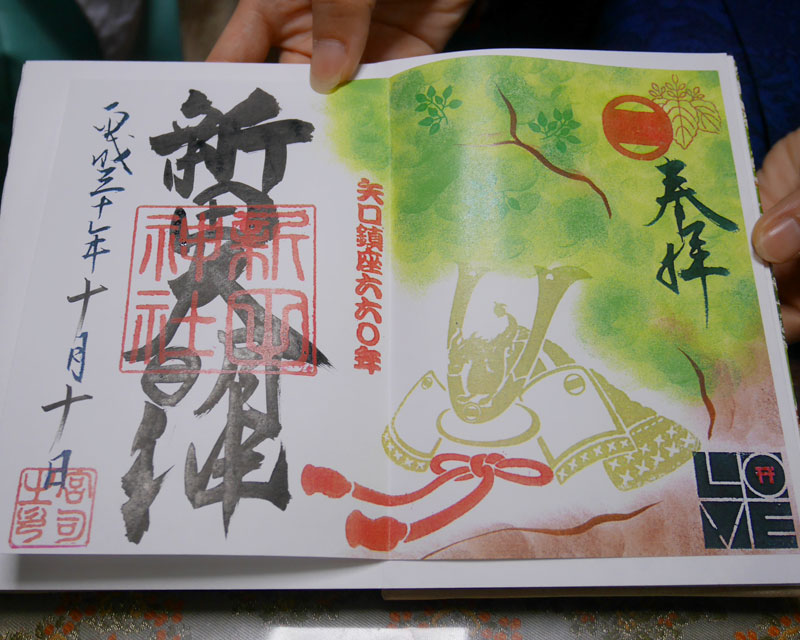 奉拝
LOVE
矢口鎮座六六〇年
新田大明神
新田神社
平成三十年十月十日
宮司之印